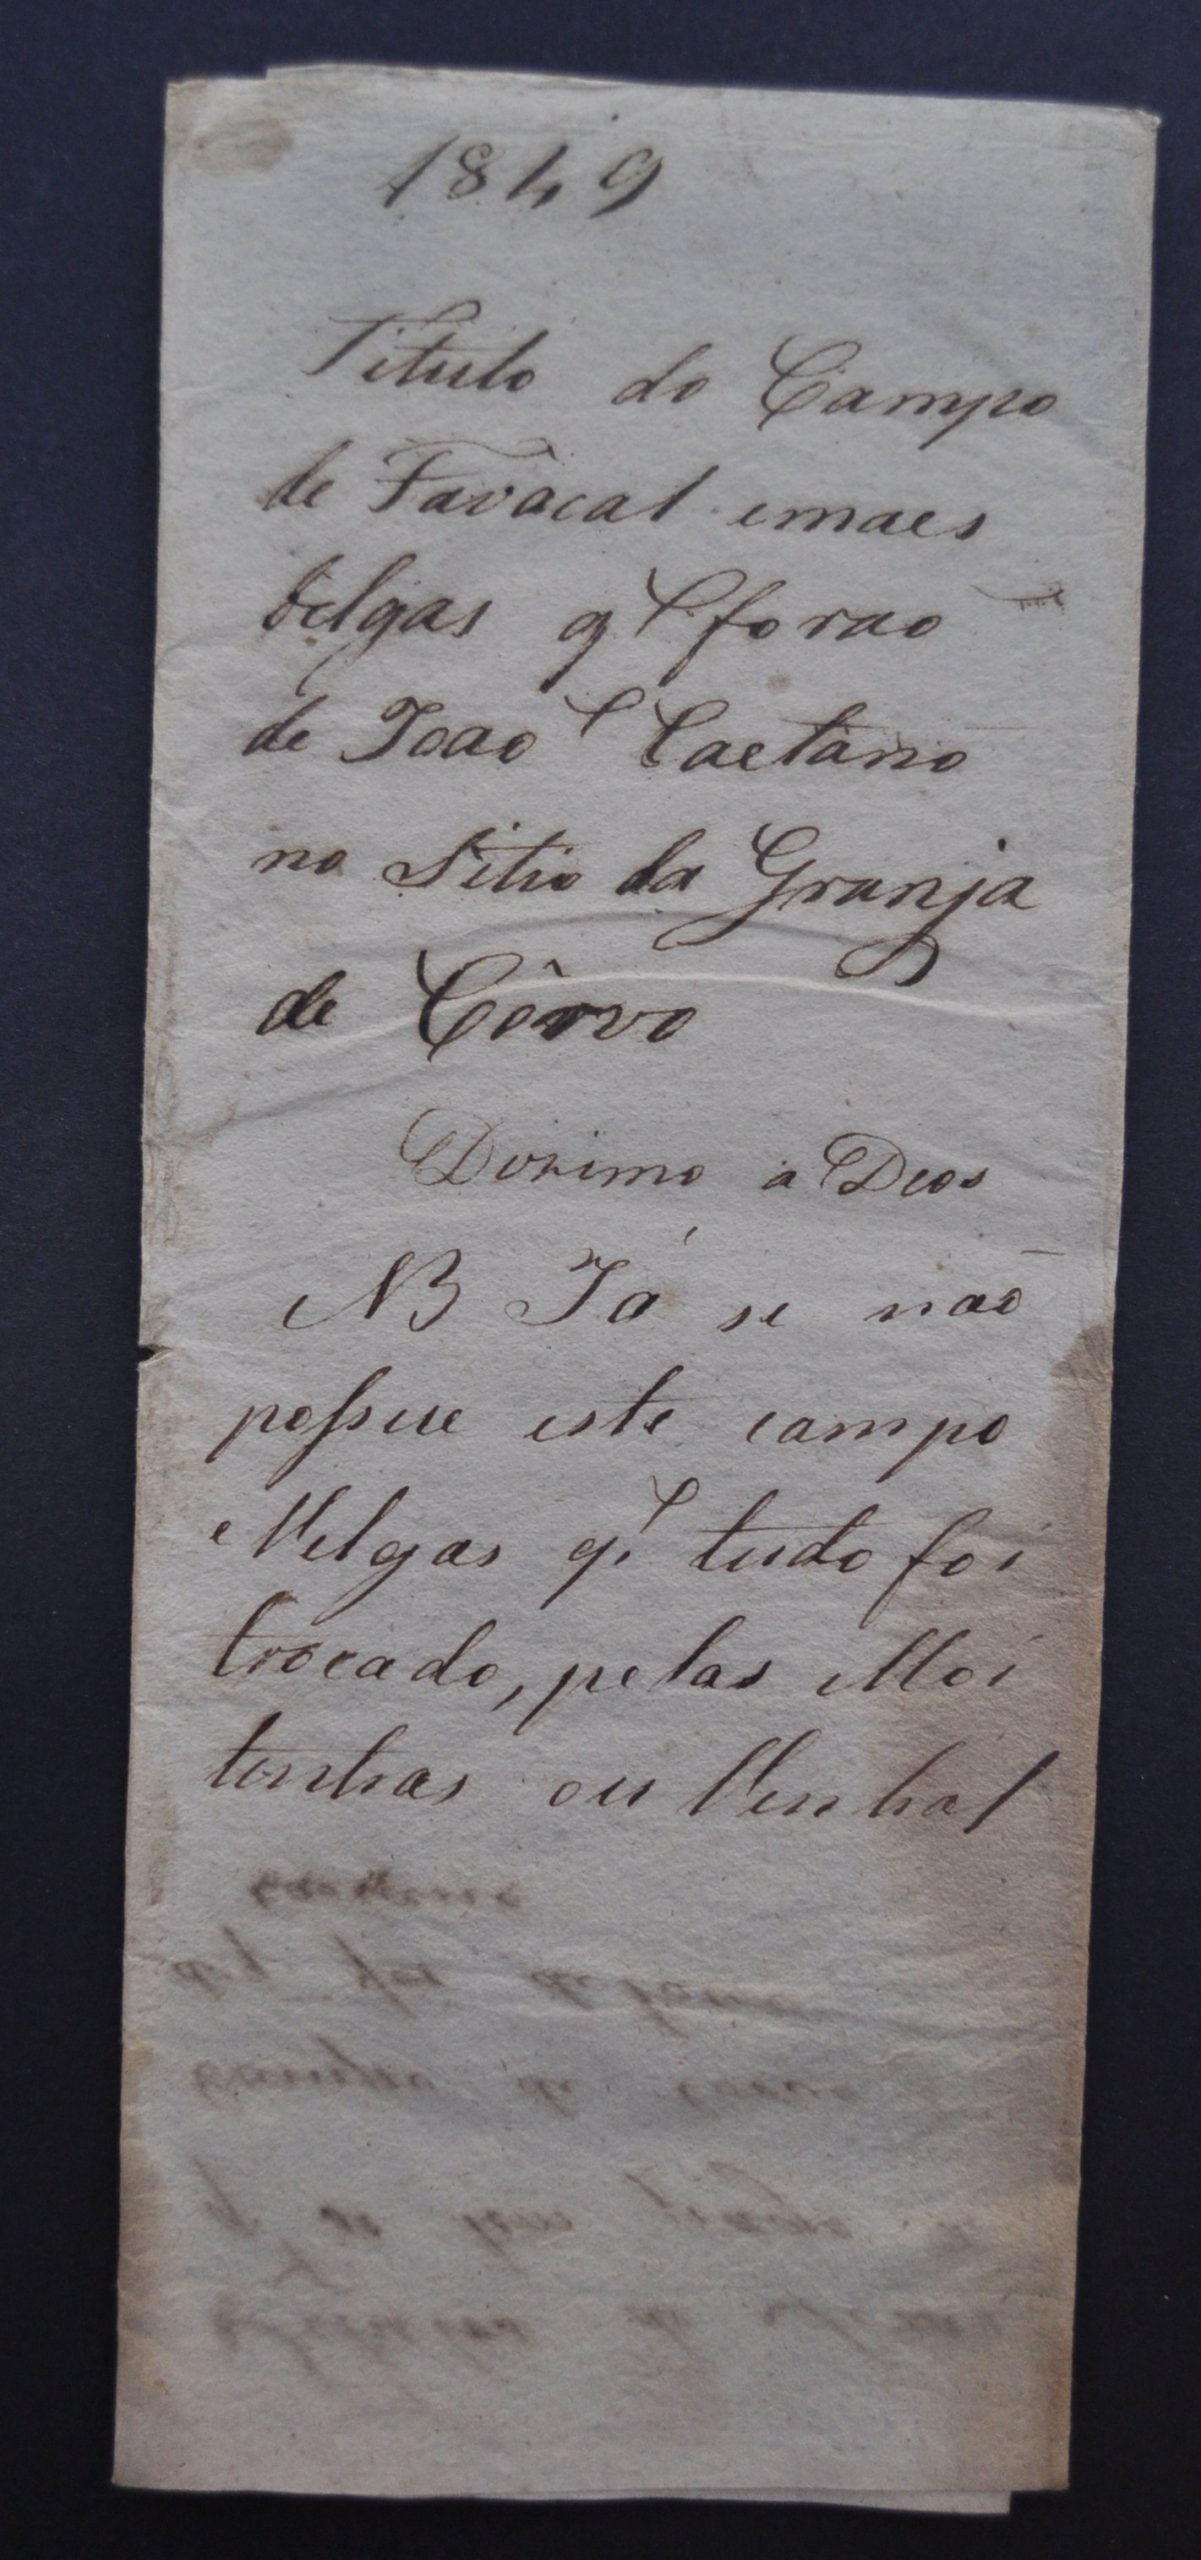 1849
Titulo do Campo
de Favacal emaes
belgas q̃ forao
de Joao Caetano
no Sitio da Granja
de Côrvo
Dorimo a Deos
NB Já se não
possue este campo
e Velgas q̃ tudo foi
trocado, pelas Moi
tinhas ou Vinhal